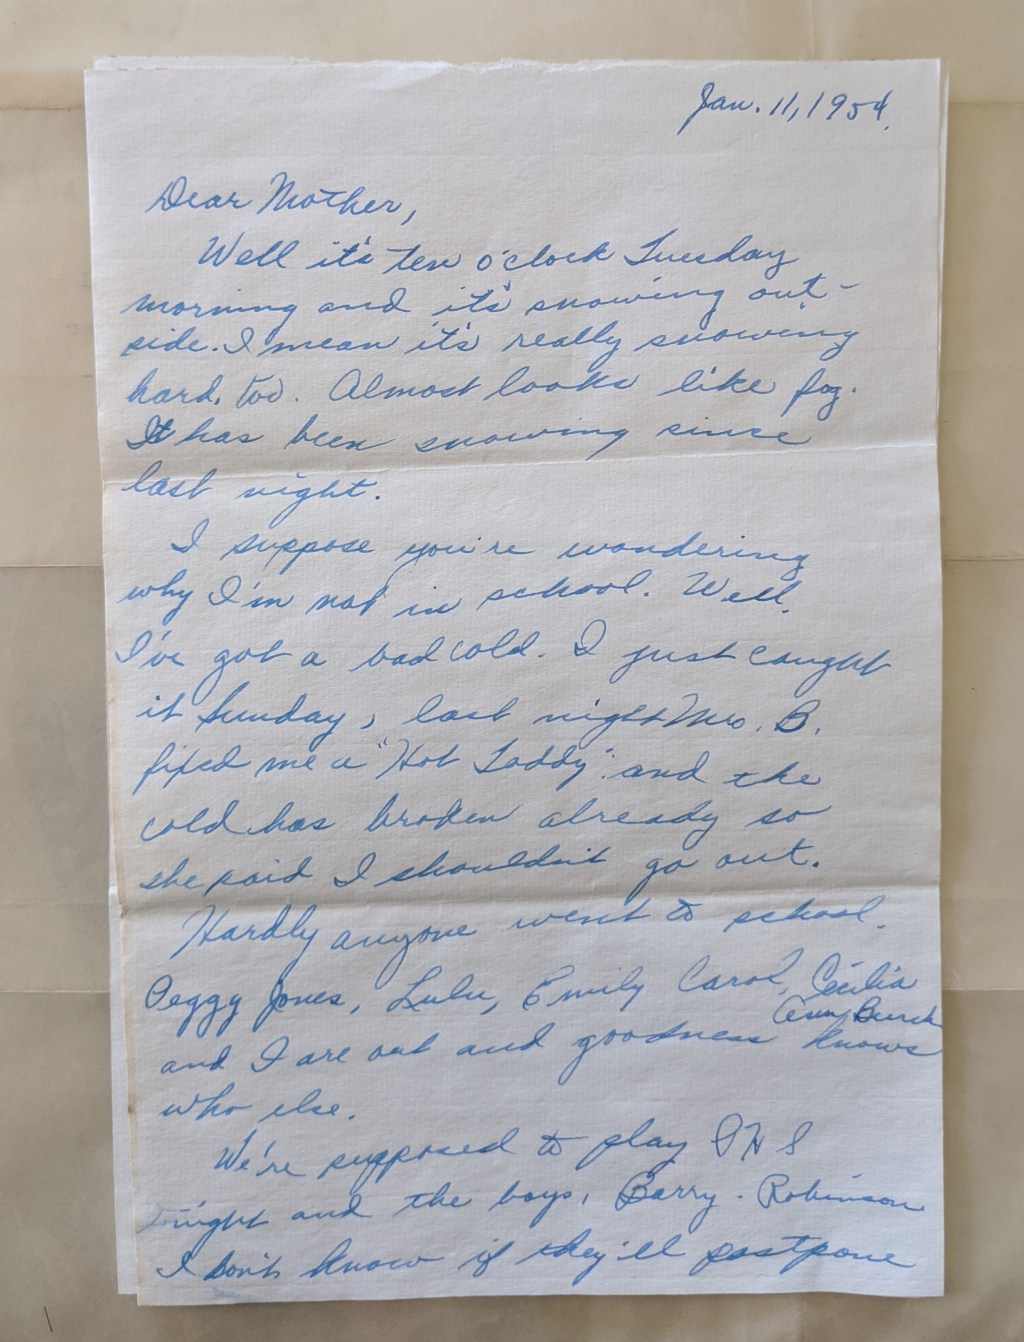 Jan. 11, 1954.
Dear Mother,
Well it's ten o'clock Tuesday
morning and it's snowing out-
side. I mean it's really snowing
hard, too. Almost looks like fog.
It has been snowing since
last night.
I suppose you're wondering
why I'm not in school. Well,
I've got a bad cold. I just caught
it Sunday, last night Mrs. B.
fixed me a "Hot Toddy" and the
cold has broken already so
she said I shouldn't go out.
Hardly anyone went to school.
Peggy Jones, Lulu, Emily Carol, Cecilia
Ann Burch
and I are out and goodness knows
who else.
We're supposed to play H S
tonight and the boys, Barry-Robinson
I don't know if they'll postpone